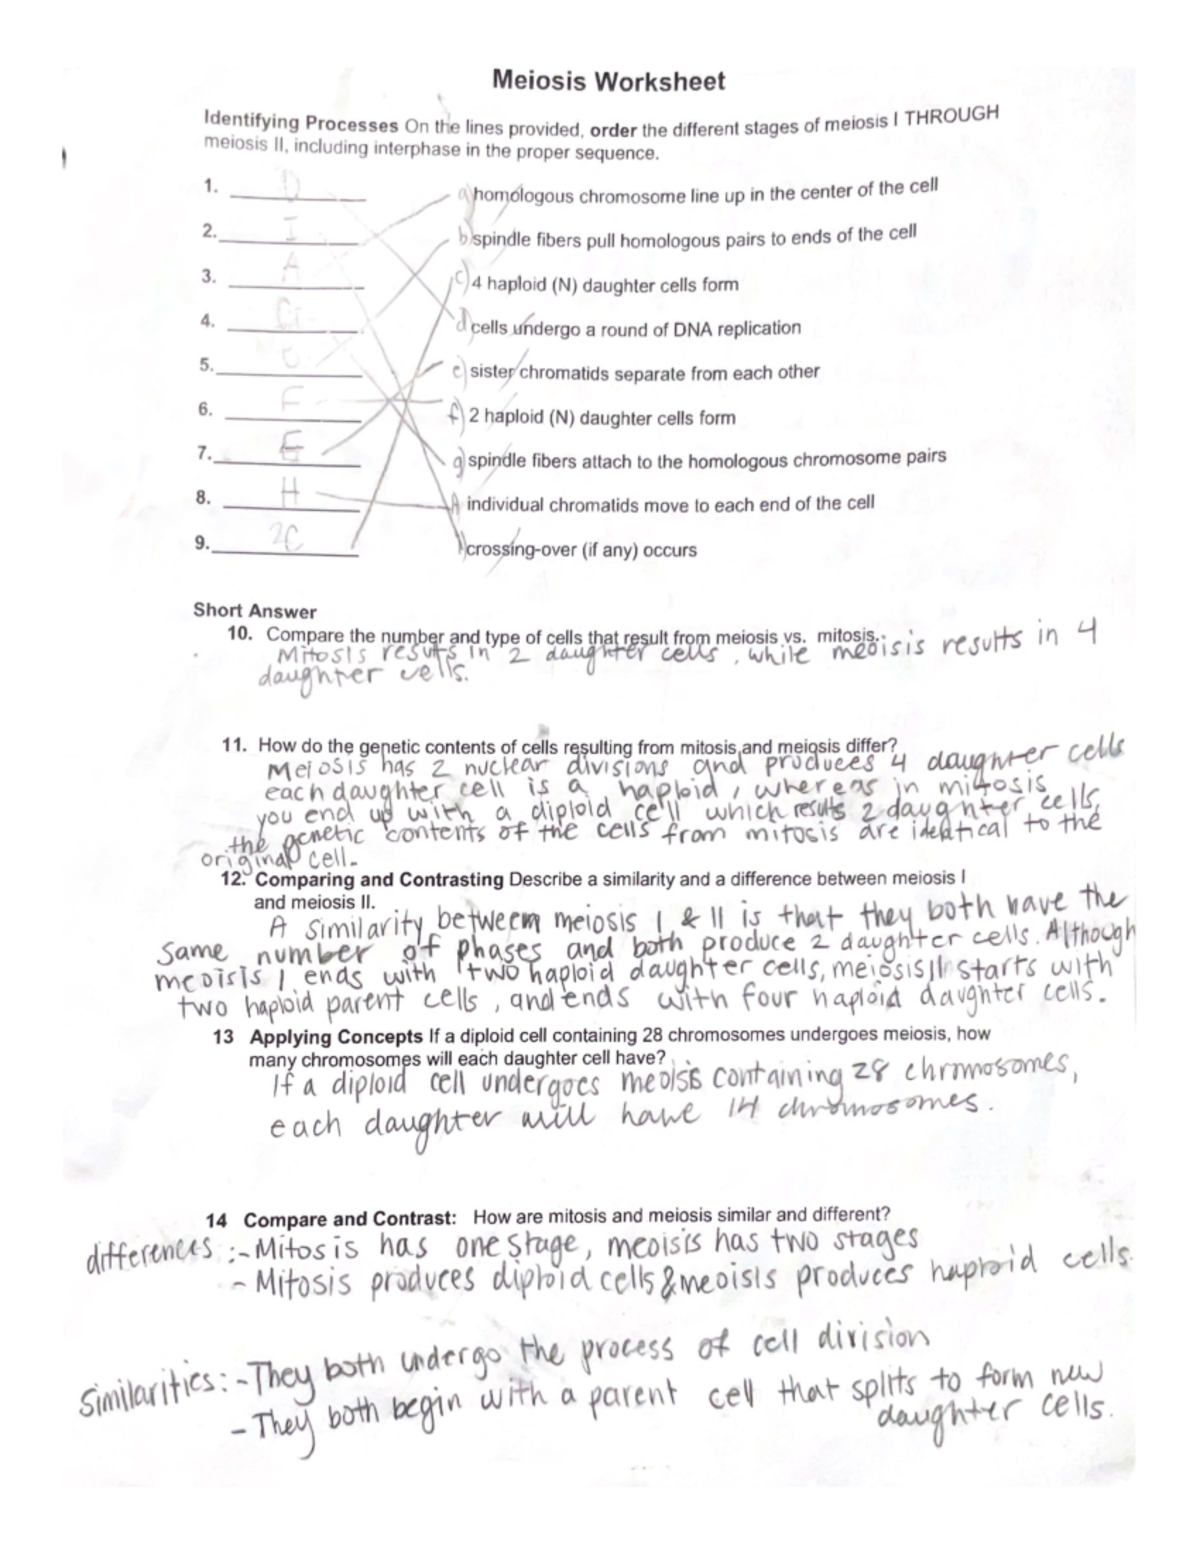 Meiosis Worksheet
Identifying Processes On the lines provided, order the different stages of meiosis I THROUGH
meiosis II, including interphase in the proper sequence.
1. D a) homologous chromosome line up in the center of the cell
2. I b) spindle fibers pull homologous pairs to ends of the cell
3. A c) 4 haploid (N) daughter cells form
4. G d cells undergo a round of DNA replication
5. e) sister chromatids separate from each other
6. F f) 2 haploid (N) daughter cells form
7. E g) spindle fibers attach to the homologous chromosome pairs
8. H h individual chromatids move to each end of the cell
9. 2C crossing-over (if any) occurs
Short Answer
10. Compare the number and type of cells that result from meiosis vs. mitosis.
Mitosis results in 2 daughter cells, while meoisis results in 4
daughter cells.
11. How do the genetic contents of cells resulting from mitosis and meiosis differ?
Meiosis has 2 nuclear divisions and produces 4 daughter cells
each daughter cell is a haploid, whereas in mitosis
you end up with a diploid cell which results 2 daughter cells,
the genetic contents of the cells from mitosis are identical to the
original cell.
12. Comparing and Contrasting Describe a similarity and a difference between meiosis I
and meiosis II.
A similarity between meiosis I & II is that they both have the
same number of phases and both produce 2 daughter cells. Although
meoisis I ends with two haploid daughter cells, meiosis II starts with
two haploid parent cells, and ends with four haploid daughter cells.
13 Applying Concepts If a diploid cell containing 28 chromosomes undergoes meiosis, how
many chromosomes will each daughter cell have?
If a diploid cell undergoes meoisis containing 28 chromosomes,
each daughter will have 14 chromosomes.
14 Compare and Contrast: How are mitosis and meiosis similar and different?
differences :- Mitosis has one stage, meoisis has two stages
- Mitosis produces diploid cells & meoisis produces haploid cells.
Similarities: - They both undergo the process of cell division
- They both begin with a parent cell that splits to form new
daughter cells.